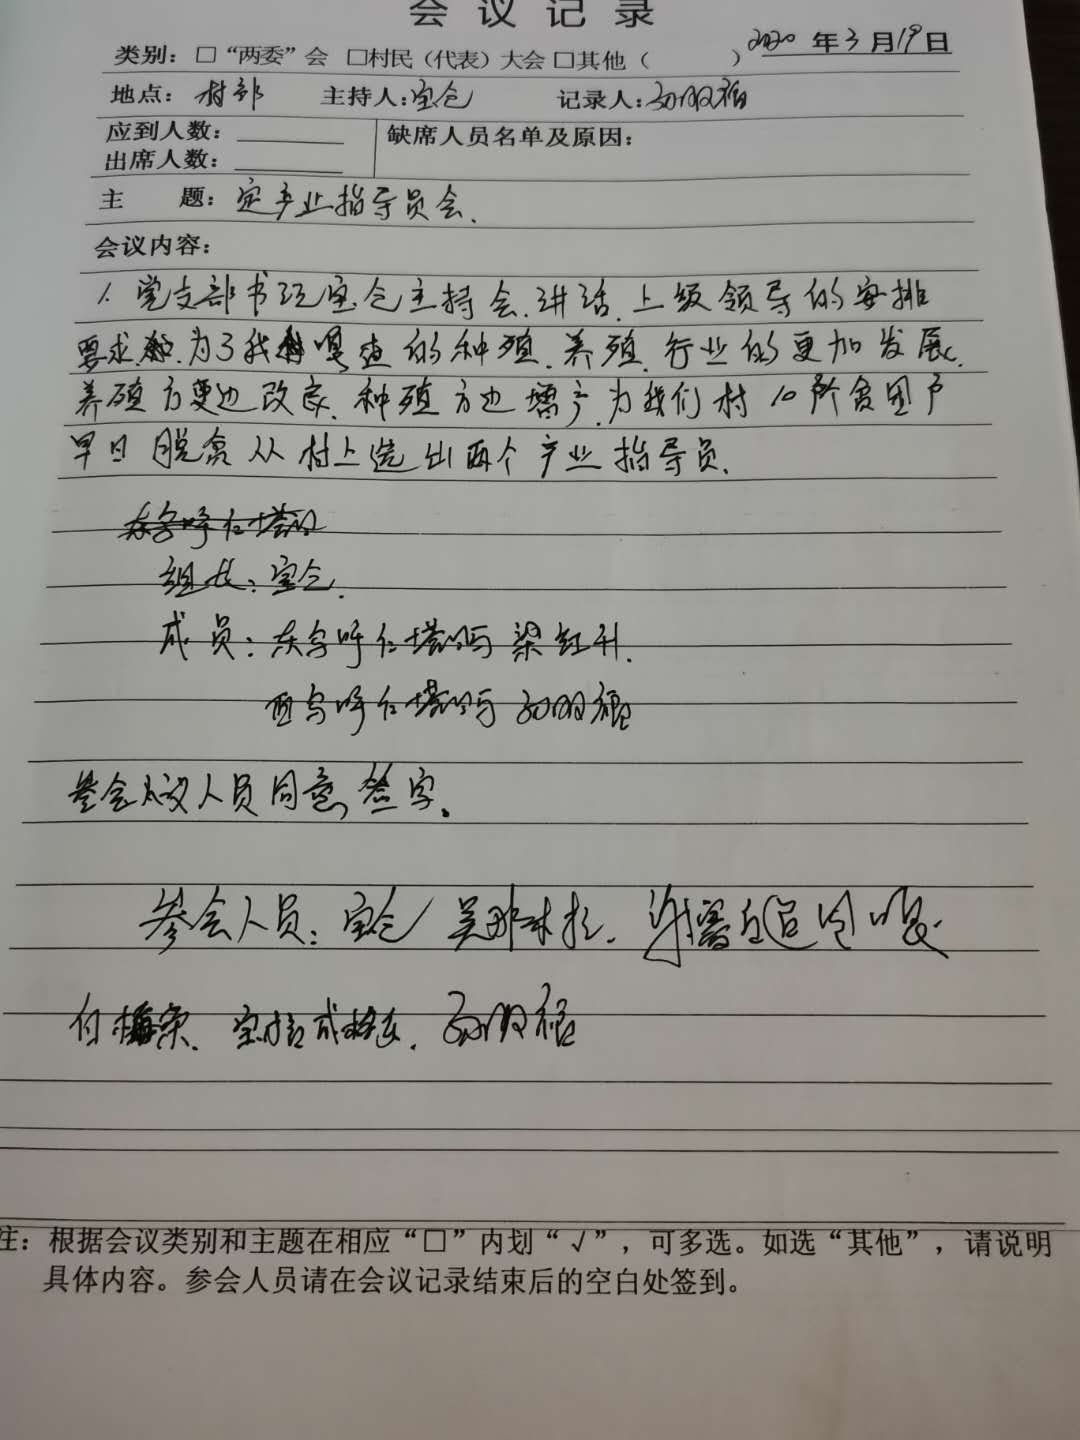 会 议 记 录
类别：□“两委”会 □村民（代表）大会 □其他（ ） 2020 年 3 月 19 日
地点：村部 主持人：宝仓 记录人：孙双福
应到人数：
出席人数：
缺席人员名单及原因：
主 题：定产业指导员会.
会议内容：
1. 党支部书记宝仓主持会.讲话.上级领导的安排
要求.为了我嘎查的种殖.养殖.行业的更加发展.
养殖方边改良.种殖方边增产.为我们村10户贫困户
早日脱贫从村上选出两个产业指导员.
组长：宝仓.
成员：东乌呼仁塔 梁红升.
西乌呼仁塔 孙双福
参会人员同意签字.
参会人员：宝仓 吴那木拉.
孙双福
注：根据会议类别和主题在相应“□”内划“√”，可多选。如选“其他”，请说明
具体内容。参会人员请在会议记录结束后的空白处签到。